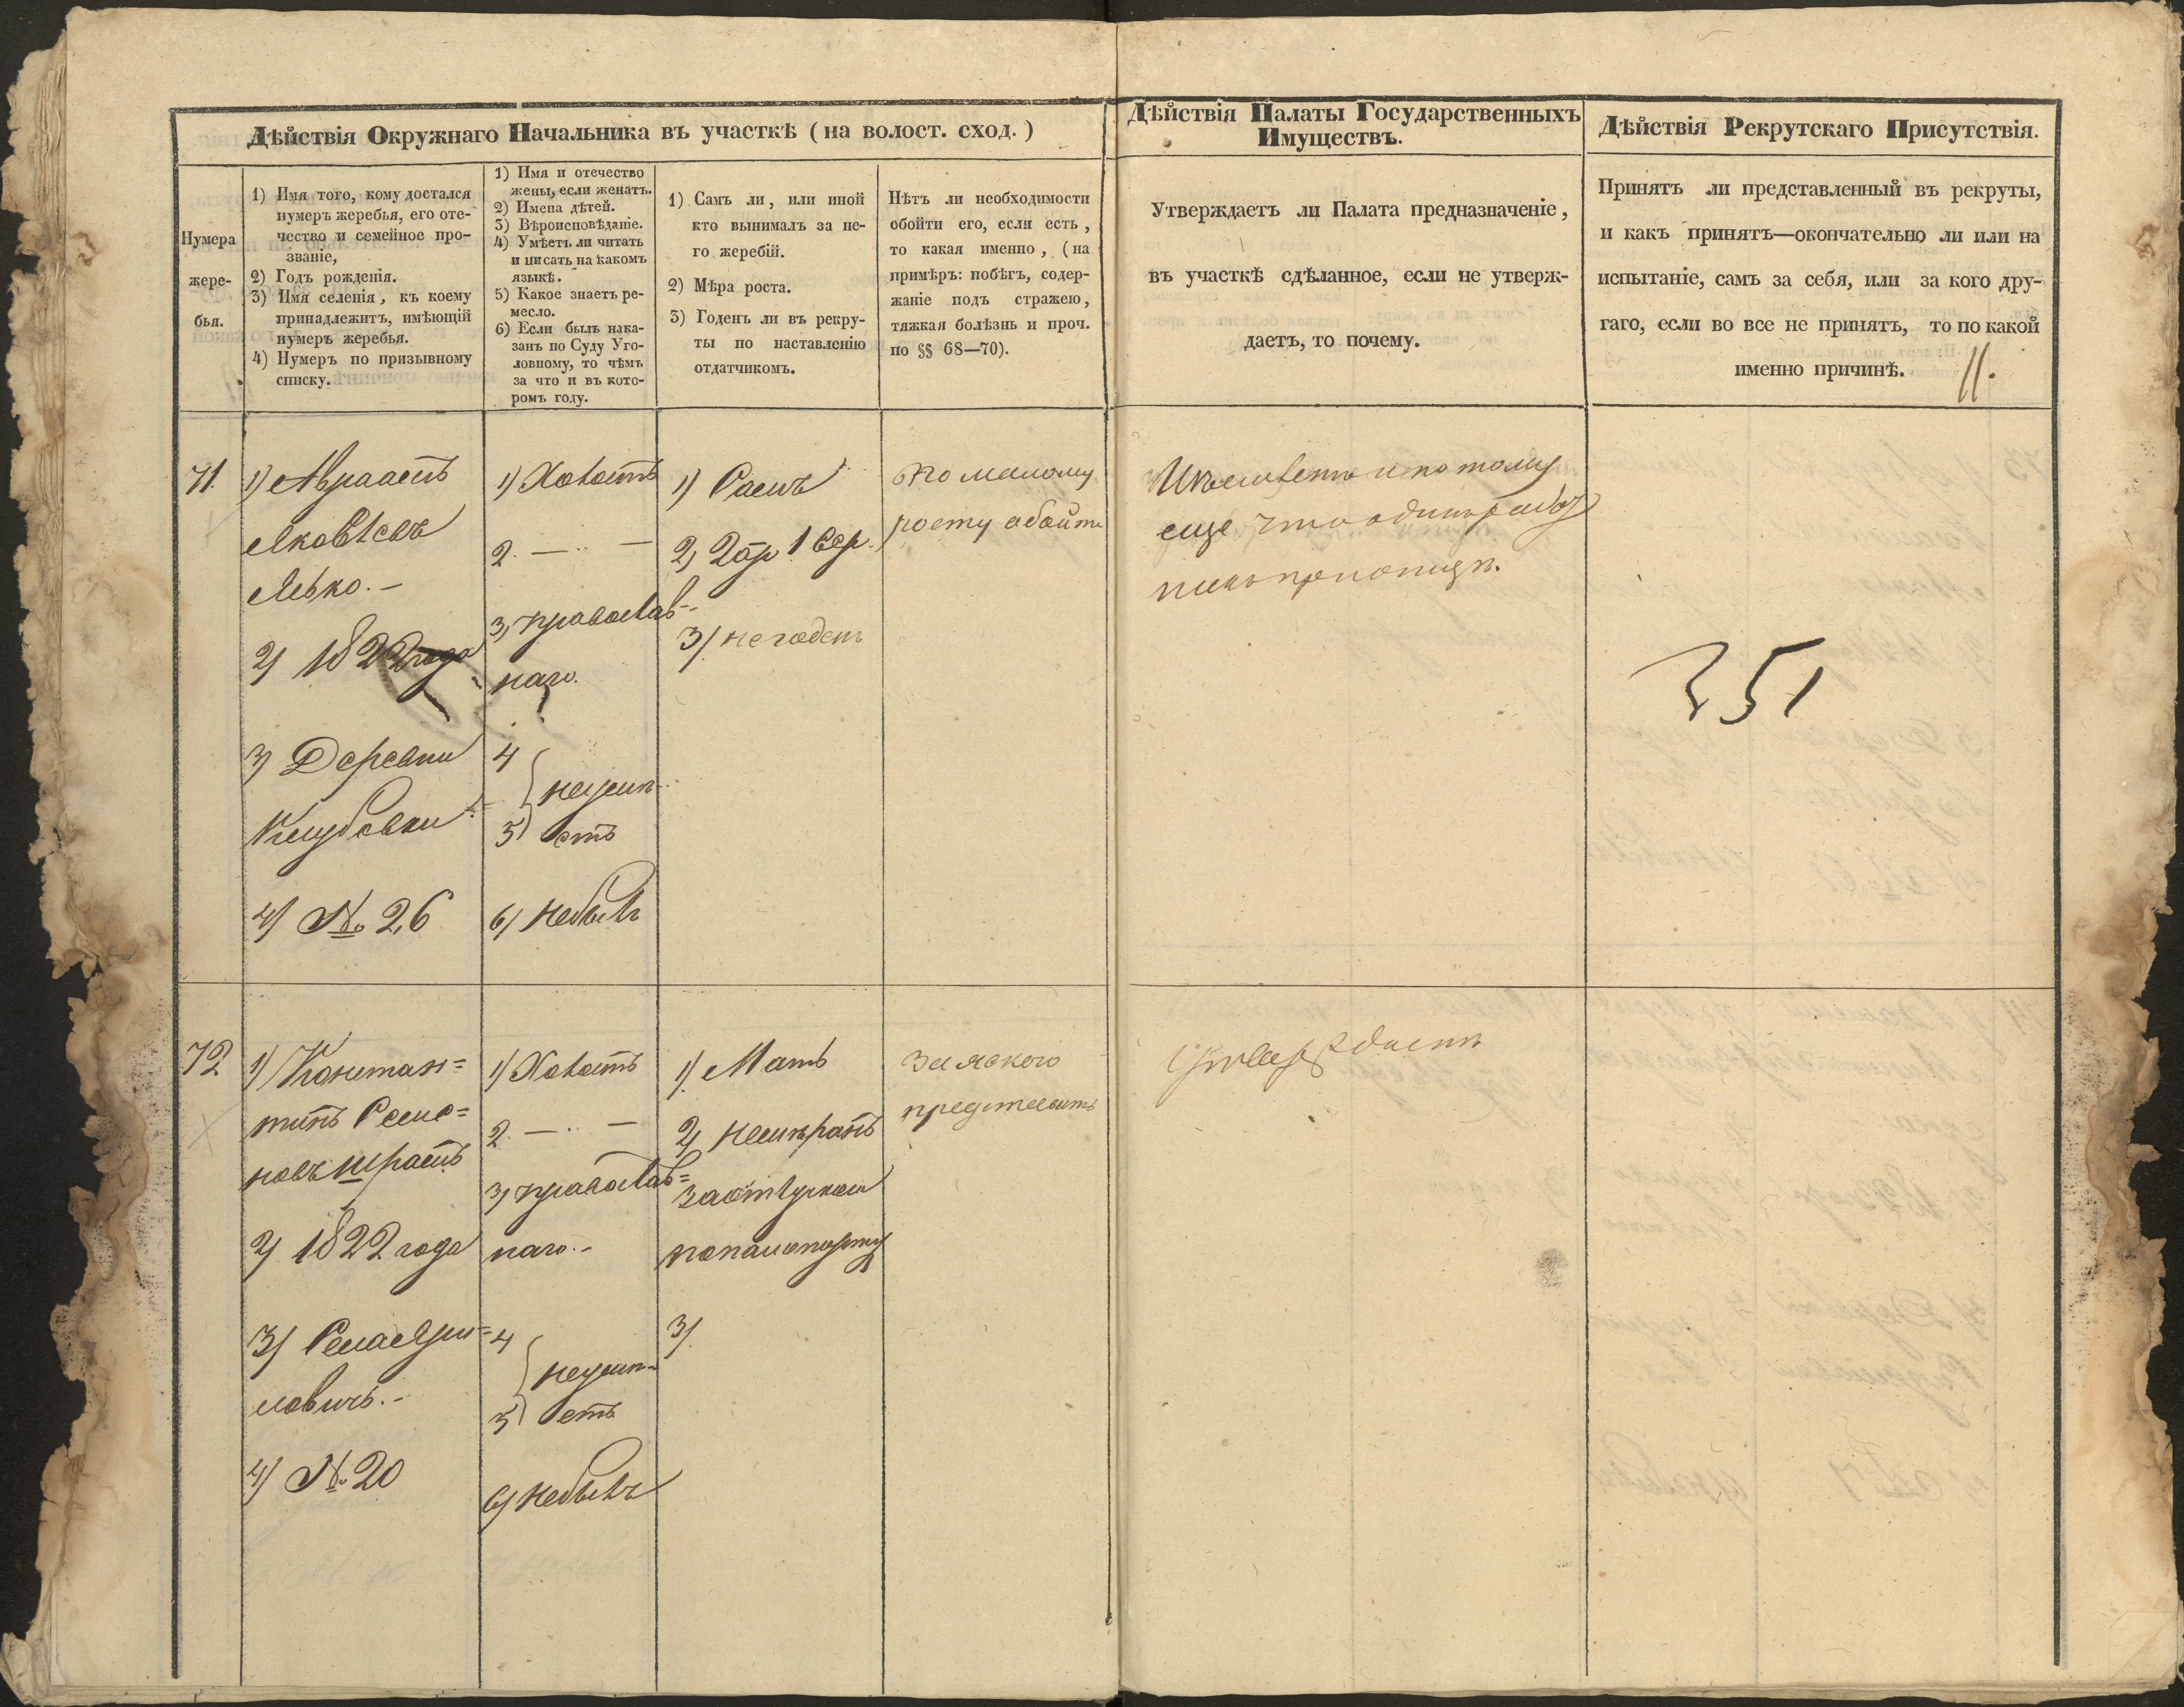 Дѣйствія Окружнаго Начальника въ участкѣ (на волост. сход.)
Нумера
жере-
бья.
1) Имя того, кому достался
нумеръ жеребья, его оте-
чество и семейное про-
званіе,
2) Годъ рожденія.
3) Имя селенія, къ коему
принадлежитъ, имѣющій
нумеръ жеребья.
4) Нумеръ по призывному
списку.
1) Имя и отечество
жены, если женатъ.
2) Имена дѣтей.
3) Вѣроисповѣданіе.
4) Умѣетъ ли читать
и писать на какомъ
языкѣ.
5) Какое знаетъ ре-
месло.
6) Если былъ нака-
занъ по Суду Уго-
ловному, то чѣмъ
за что и въ кото-
ромъ году.
1) Самъ ли, или иной
кто вынималъ за не-
го жеребій.
2) Мѣра роста.
3) Годенъ ли въ рекру-
ты по наставленію
отдатчикомъ.
Нѣтъ ли необходимости
обойти его, если есть,
то какая именно, (на
примѣръ: побѣгъ, содер-
жаніе подъ стражею,
тяжкая болѣзнь и проч.
по §§ 68—70).
Дѣйствія Палаты Государственныхъ
Имуществъ.
Утверждаетъ ли Палата предназначеніе,
въ участкѣ сдѣланное, если не утверж-
даетъ, то почему.
Дѣйствія Рекрутскаго Присутствія.
Принятъ ли представленный въ рекруты,
и какъ принятъ—окончательно ли или на
испытаніе, самъ за себя, или за кого дру-
гаго, если во все не принятъ, то по какой
именно причинѣ.
11.
71.
1) Авраамъ
Яковлевъ
2) 1822 года
3) Деревни
4) № 26
1) Холостъ
2. — —
3) православ-
наго.
4
5) неумѣ-
етъ
6) небылъ
1) Самъ
2) 2 ар 1 вер.
3) негоденъ
По малому
росту обойти
еще что одинъ
351
72
1) Констан=
тинъ Семе=
новъ
2) 1822 года
3) Села
ловичъ.-
4) № 20
1) Холостъ
2. — —
3) православ=
наго.-
4
5) неумѣ-
етъ
6) небылъ
1) Мать
2) немѣранъ
попашпорту
3)
представить
Утверждаетъ